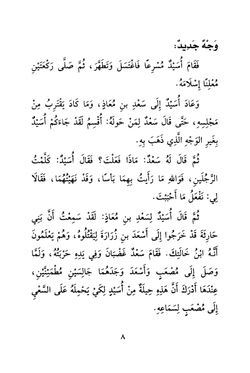 وَجْهٌ جَدِيدٌ:
فَقَامَ أُسَيْدٌ مُسْرِعًا فَاغْتَسَلَ وَتَطَهَّرَ، ثُمَّ صَلَّى رَكْعَتَيْنِ
مُعْلِنًا إِسْلَامَهُ.
وَعَادَ أُسَيْدٌ إِلَى سَعْدِ بنِ مُعَاذٍ، وَمَا كَادَ يَقْتَرِبُ مِنْ
مَجْلِسِهِ، حَتَّى قَالَ سَعْدٌ لِمَنْ حَوْلَهُ: أُقْسِمُ لَقَدْ جَاءَكُمْ أُسَيْدٌ
بِغَيرِ الوَجْهِ الَّذِي ذَهَبَ بِهِ.
ثُمَّ قَالَ لَهُ سَعْدٌ: مَاذَا فَعَلْتَ؟ فَقَالَ أُسَيْدٌ: كَلَّمْتُ
الرَّجُلَيْنِ، فَوَاللهِ مَا رَأَيتُ بِهِمَا بَأسًا، وَقَدْ نَهَيْتُهُمَا، فَقَالَا
لِي: نَفْعَلُ مَا أَحْبَبْتَ.
ثُمَّ قَالَ أُسَيْدٌ لِسَعْدِ بنِ مُعَاذٍ: لَقَدْ سَمِعْتُ أَنَّ بَنِي
حَارِثَةَ قَدْ خَرَجُوا إِلَى أَسْعَدَ بنِ زُرَارَةَ لِيَقْتُلُوهُ، وَهُمْ يَعْلَمُونَ
أَنَّهُ ابْنُ خَالَتِكَ. فَقَامَ سَعْدٌ غَضْبَانَ وَفِي يَدِهِ حَرْبَتُهُ، وَلَمَّا
وَصَلَ إِلَى مُصْعَبٍ وَأَسْعَدَ وَجَدَهُمَا جَالِسَيْنِ مُطْمَئِنَّيْنِ،
عِنْدَهَا أَدْرَكَ أَنَّ هَذِهِ حِيلَةٌ مِنْ أُسَيْدٍ لِكَيْ يَحْمِلَهُ عَلَى السَّعْيِ
إِلَى مُصْعَبٍ لِسَمَاعِهِ.
٨